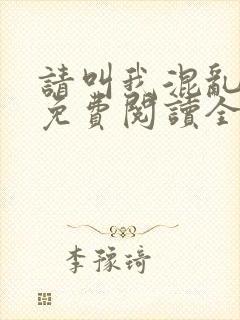 請叫我混亂
免費閱讀全
李豫琦